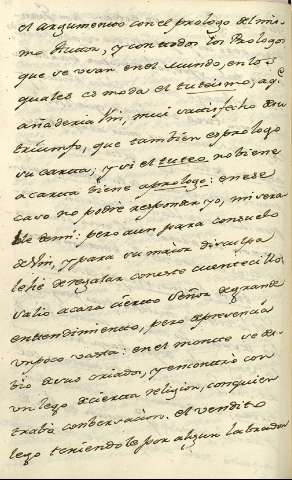 el argumento con el prologo del mis-
mo Autor, y con todos los Prologos
que se usan en el mundo, en los
quales es moda el tuteismo; aqui
añaderia Um, mui satisfecho de su
triumfo, que tambien es prologo
su carta; y si el tuteo no viene
a carta viene a prologo: en ese
caso no podrè responder yo, misera-
ble de mi: pero aun para consuelo
de Um, y para su maior disculpa
le hè de regalar con este cuentecillo.
Salio a caza cierto Señor de grande
entendimiento, pero de presencia
un poco basta: en el monte se des-
viò de sus criados, y encontrò con
un lego de cierta religion, con quien
trabò conversacion. el bendito
lego teniendole por algun labrador